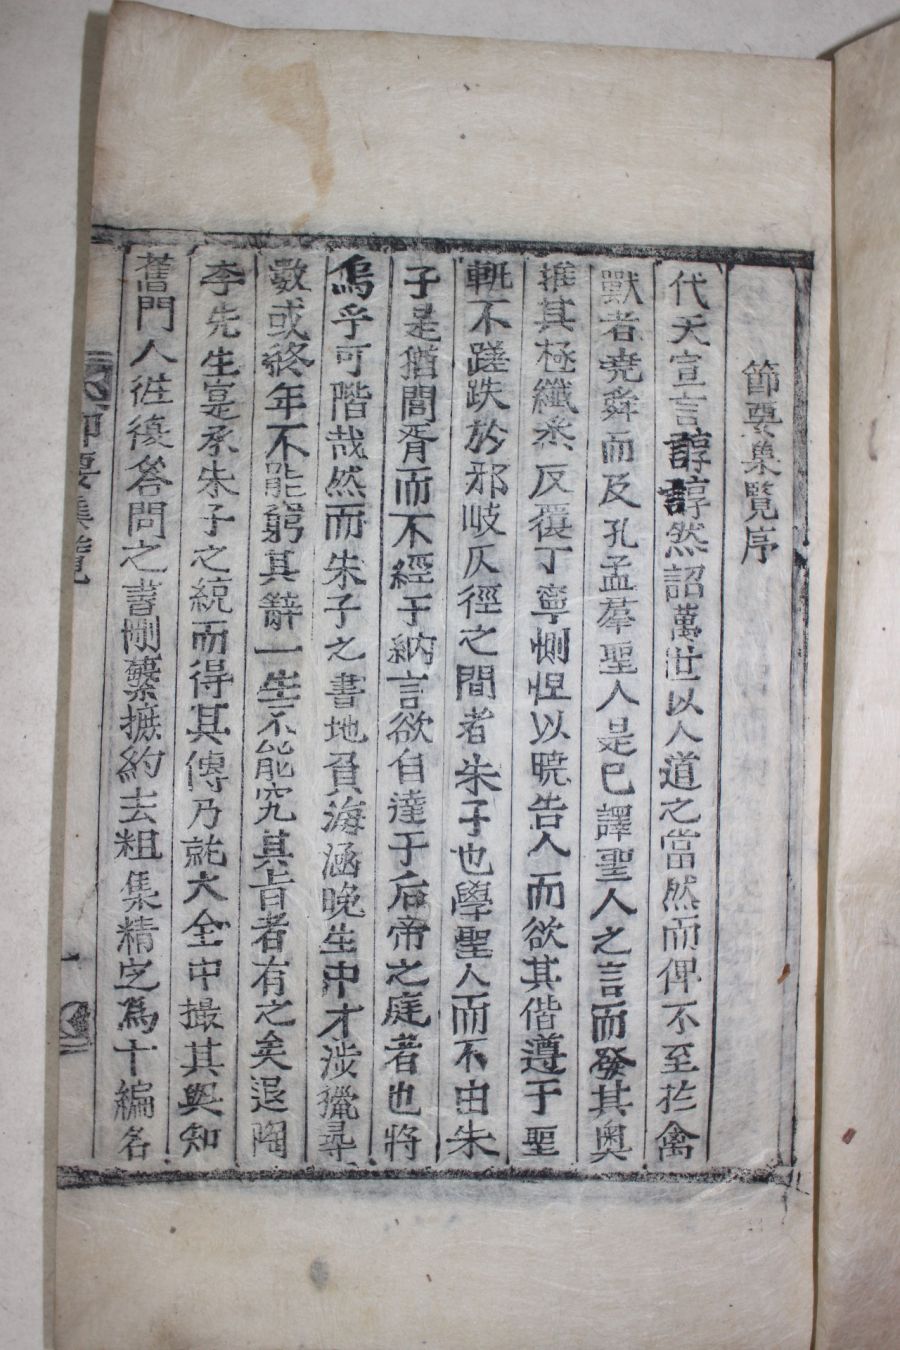 節要集覽序
代天宣言諄諄然詔萬世以人道之當然而俾不至於禽
獸者堯舜而及孔孟羣聖人是已譯聖人之言而發其奧
推其極纖悉反覆丁寧惻怛以曉告人而欲其偕遵于聖
軌不蹉跌於邪岐仄徑之間者朱子也學聖人而不由朱
子是猶閽胥而不經于納言欲自達于后帝之庭者也將
烏乎可階哉然而朱子之書地負海涵晚生中才涉獵尋
數或終年不能窮其辭一生不能究其旨者有之矣退陶
李先生寔承朱子之統而得其傳乃就大全中撮其與知
舊門人往復答問之書刪繁摭約去粗集精定爲十編名
節要集覽